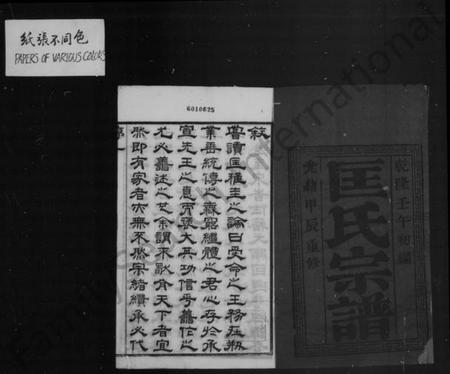 紙張不同色
PAPERS OF VARIOUS COLORS
6010625
乾隆壬午
匡氏宗譜
光緒甲辰重修
敘
嘗讀匡稚圭之論曰受命之王務在刱
業垂統傳之無窮繼體之君心存於承
宣先王之意而襃大其功信乎善作之
尤必善述之也余謂不獨有天下者宜
然即有家者亦無不然宗緒續承必代